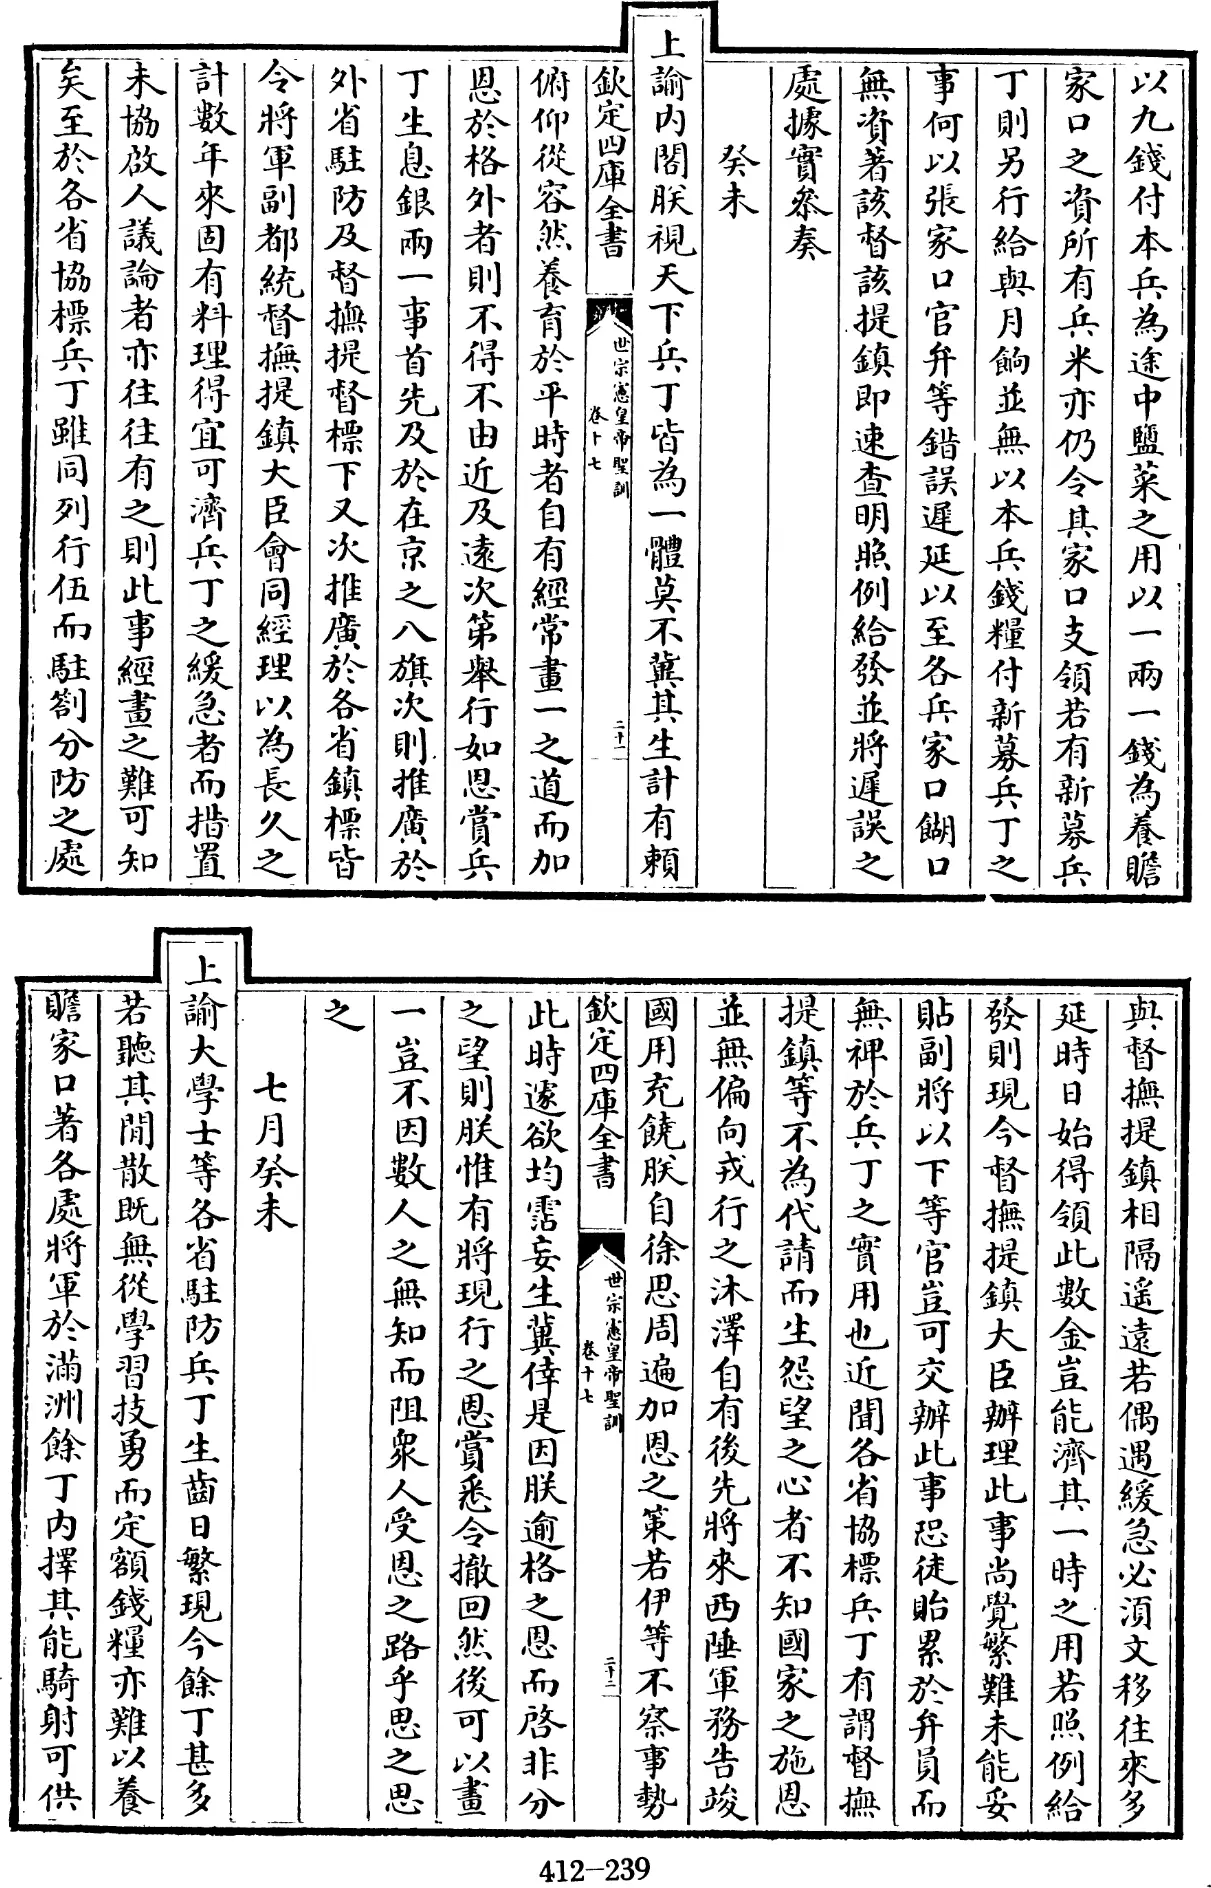 以九錢付本兵為途中鹽菜之用以一兩一錢為養贍
家口之資所有兵米亦仍令其家口支領若有新募兵
丁則另行給與月餉並無以本兵錢糧付新募兵丁之
事何以張家口官弁等錯誤遲延以至各兵家口餬口
無資著該督該提鎮即速查明照例給發並將遲誤之
處據實叅奏
癸未
上諭内閣朕視天下兵丁皆為一體莫不冀其生計有賴
欽定四庫全書
世宗憲皇帝聖訓
卷十七
二十一
俯仰從容然養育於平時者自有經常畫一之道而加
恩於格外者則不得不由近及遠次第舉行如恩賞兵
丁生息銀兩一事首先及於在京之八旗次則推廣於
外省駐防及督撫提督標下又次推廣於各省鎮標皆
令將軍副都統督撫提鎮大臣會同經理以為長久之
計數年來固有料理得宜可濟兵丁之緩急者而措置
未協啟人議論者亦往往有之則此事經畫之難可知
矣至於各省協標兵丁雖同列行伍而駐劄分防之處
與督撫提鎮相隔遥遠若偶遇緩急必須文移往來多
延時日始得領此數金豈能濟其一時之用若照例給
發則現今督撫提鎮大臣辦理此事尚覺繁難未能妥
貼副將以下等官豈可交辦此事恐徒貽累於弁員而
無裨於兵丁之實用也近聞各省協標兵丁有謂督撫
提鎮等不為代請而生怨望之心者不知國家之施恩
並無偏向戎行之沐澤自有後先將來西陲軍務告竣
國用充饒朕自徐思周遍加恩之策若伊等不察事勢
欽定四庫全書
世宗憲皇帝聖訓
卷十七
二十二
此時遂欲均霑妄生冀倖是因朕逾格之恩而啓非分
之望則朕惟有將現行之恩賞悉令撤回然後可以畫
一豈不因數人之無知而阻衆人受恩之路乎思之思
之
七月癸未
上諭大學士等各省駐防兵丁生齒日繁現今餘丁甚多
若聽其閒散既無從學習技勇而定額錢糧亦難以養
贍家口著各處將軍於滿洲餘丁内擇其能騎射可供
412-239